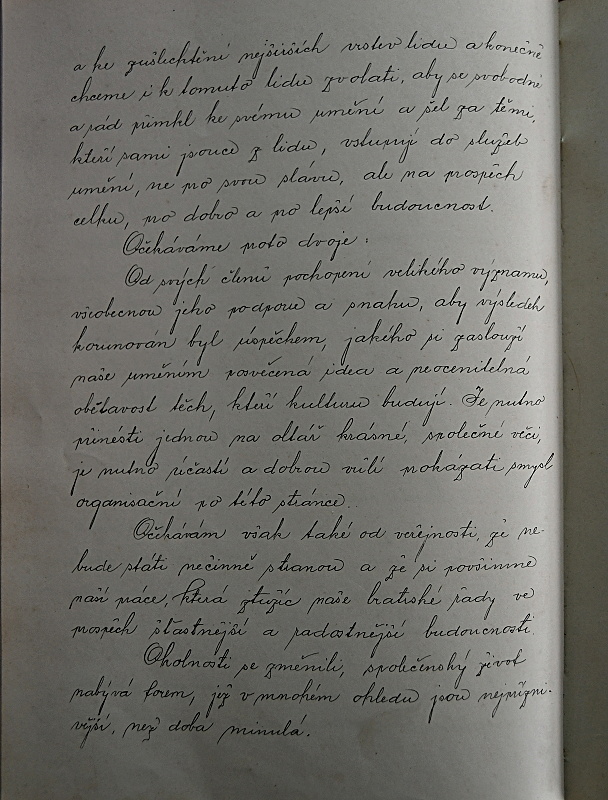 a ke zušlechtění nejširších vrstev lidu a konečně
chceme i k tomuto lidu zvolati, aby se svobodně
a rád přimkl ke svému umění a šel za těmi,
kteří sami jsouce z lidu, vstupují do služeb
umění, ne pro svou slávu, ale na prospěch
celku, pro dobro a pro lepší budoucnost.
Očekáváme proto dvoje:
Od svých členů pochopení velikého významu,
všeobecnou jeho podporu a snahu, aby výsledek
korunován byl úspěchem, jakého si zaslouží
naše uměním posvěcená idea a neocenitelná
obětavost těch, kteří kulturu budují. Je nutno
přinésti jednou na oltář krásné, společné věci,
je nutno účastí a dobrou vůlí pokázati smysl
organisační po této stránce.
Očekávám však také od veřejnosti, že ne-
bude státi nečinně stranou a že si povšimne
naší práce, která ztužíc naše bratrské řady ve
prospěch šťastnější a radostnější budoucnosti.
Okolnosti se změnili, společenský život
nabývá forem, jež v mnohém ohledu jsou nejpřízni-
vější, než doba minulá.